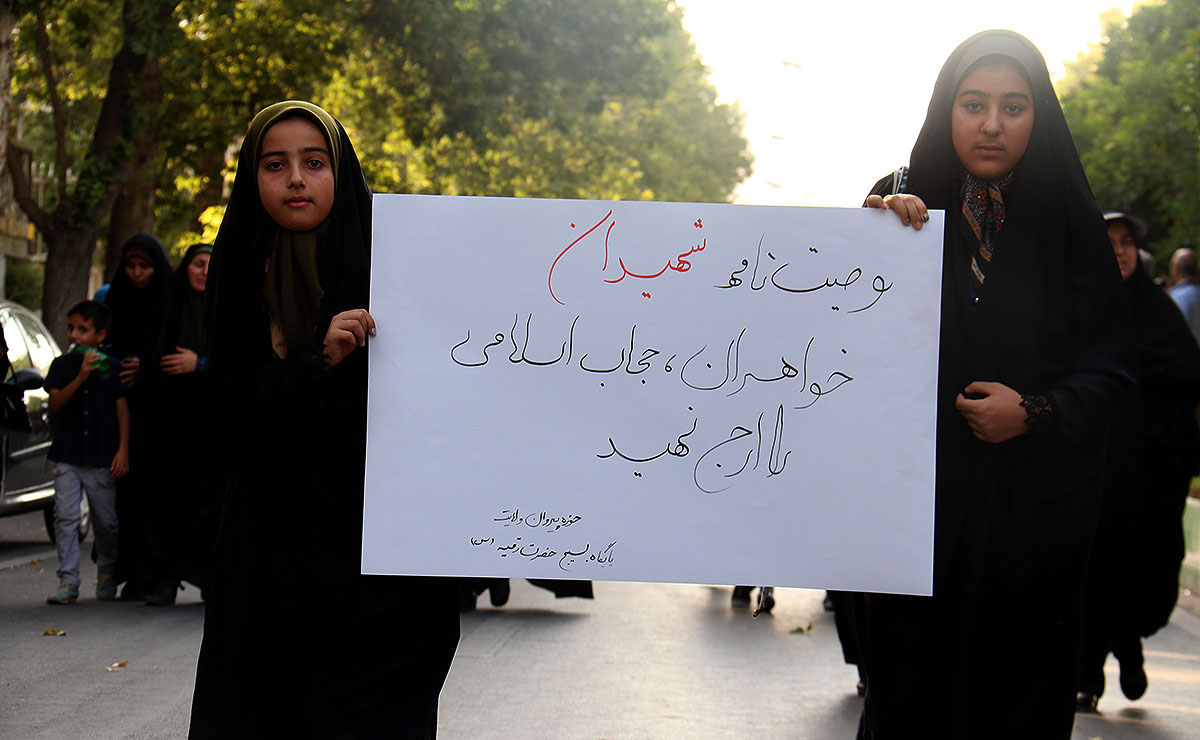 وصیت نامه شهیدان
خواهران، حجاب اسلامی
را ارج نهید
حوزه پیروان ولایت
پایگاه بسیج حضرت رقیه (س)